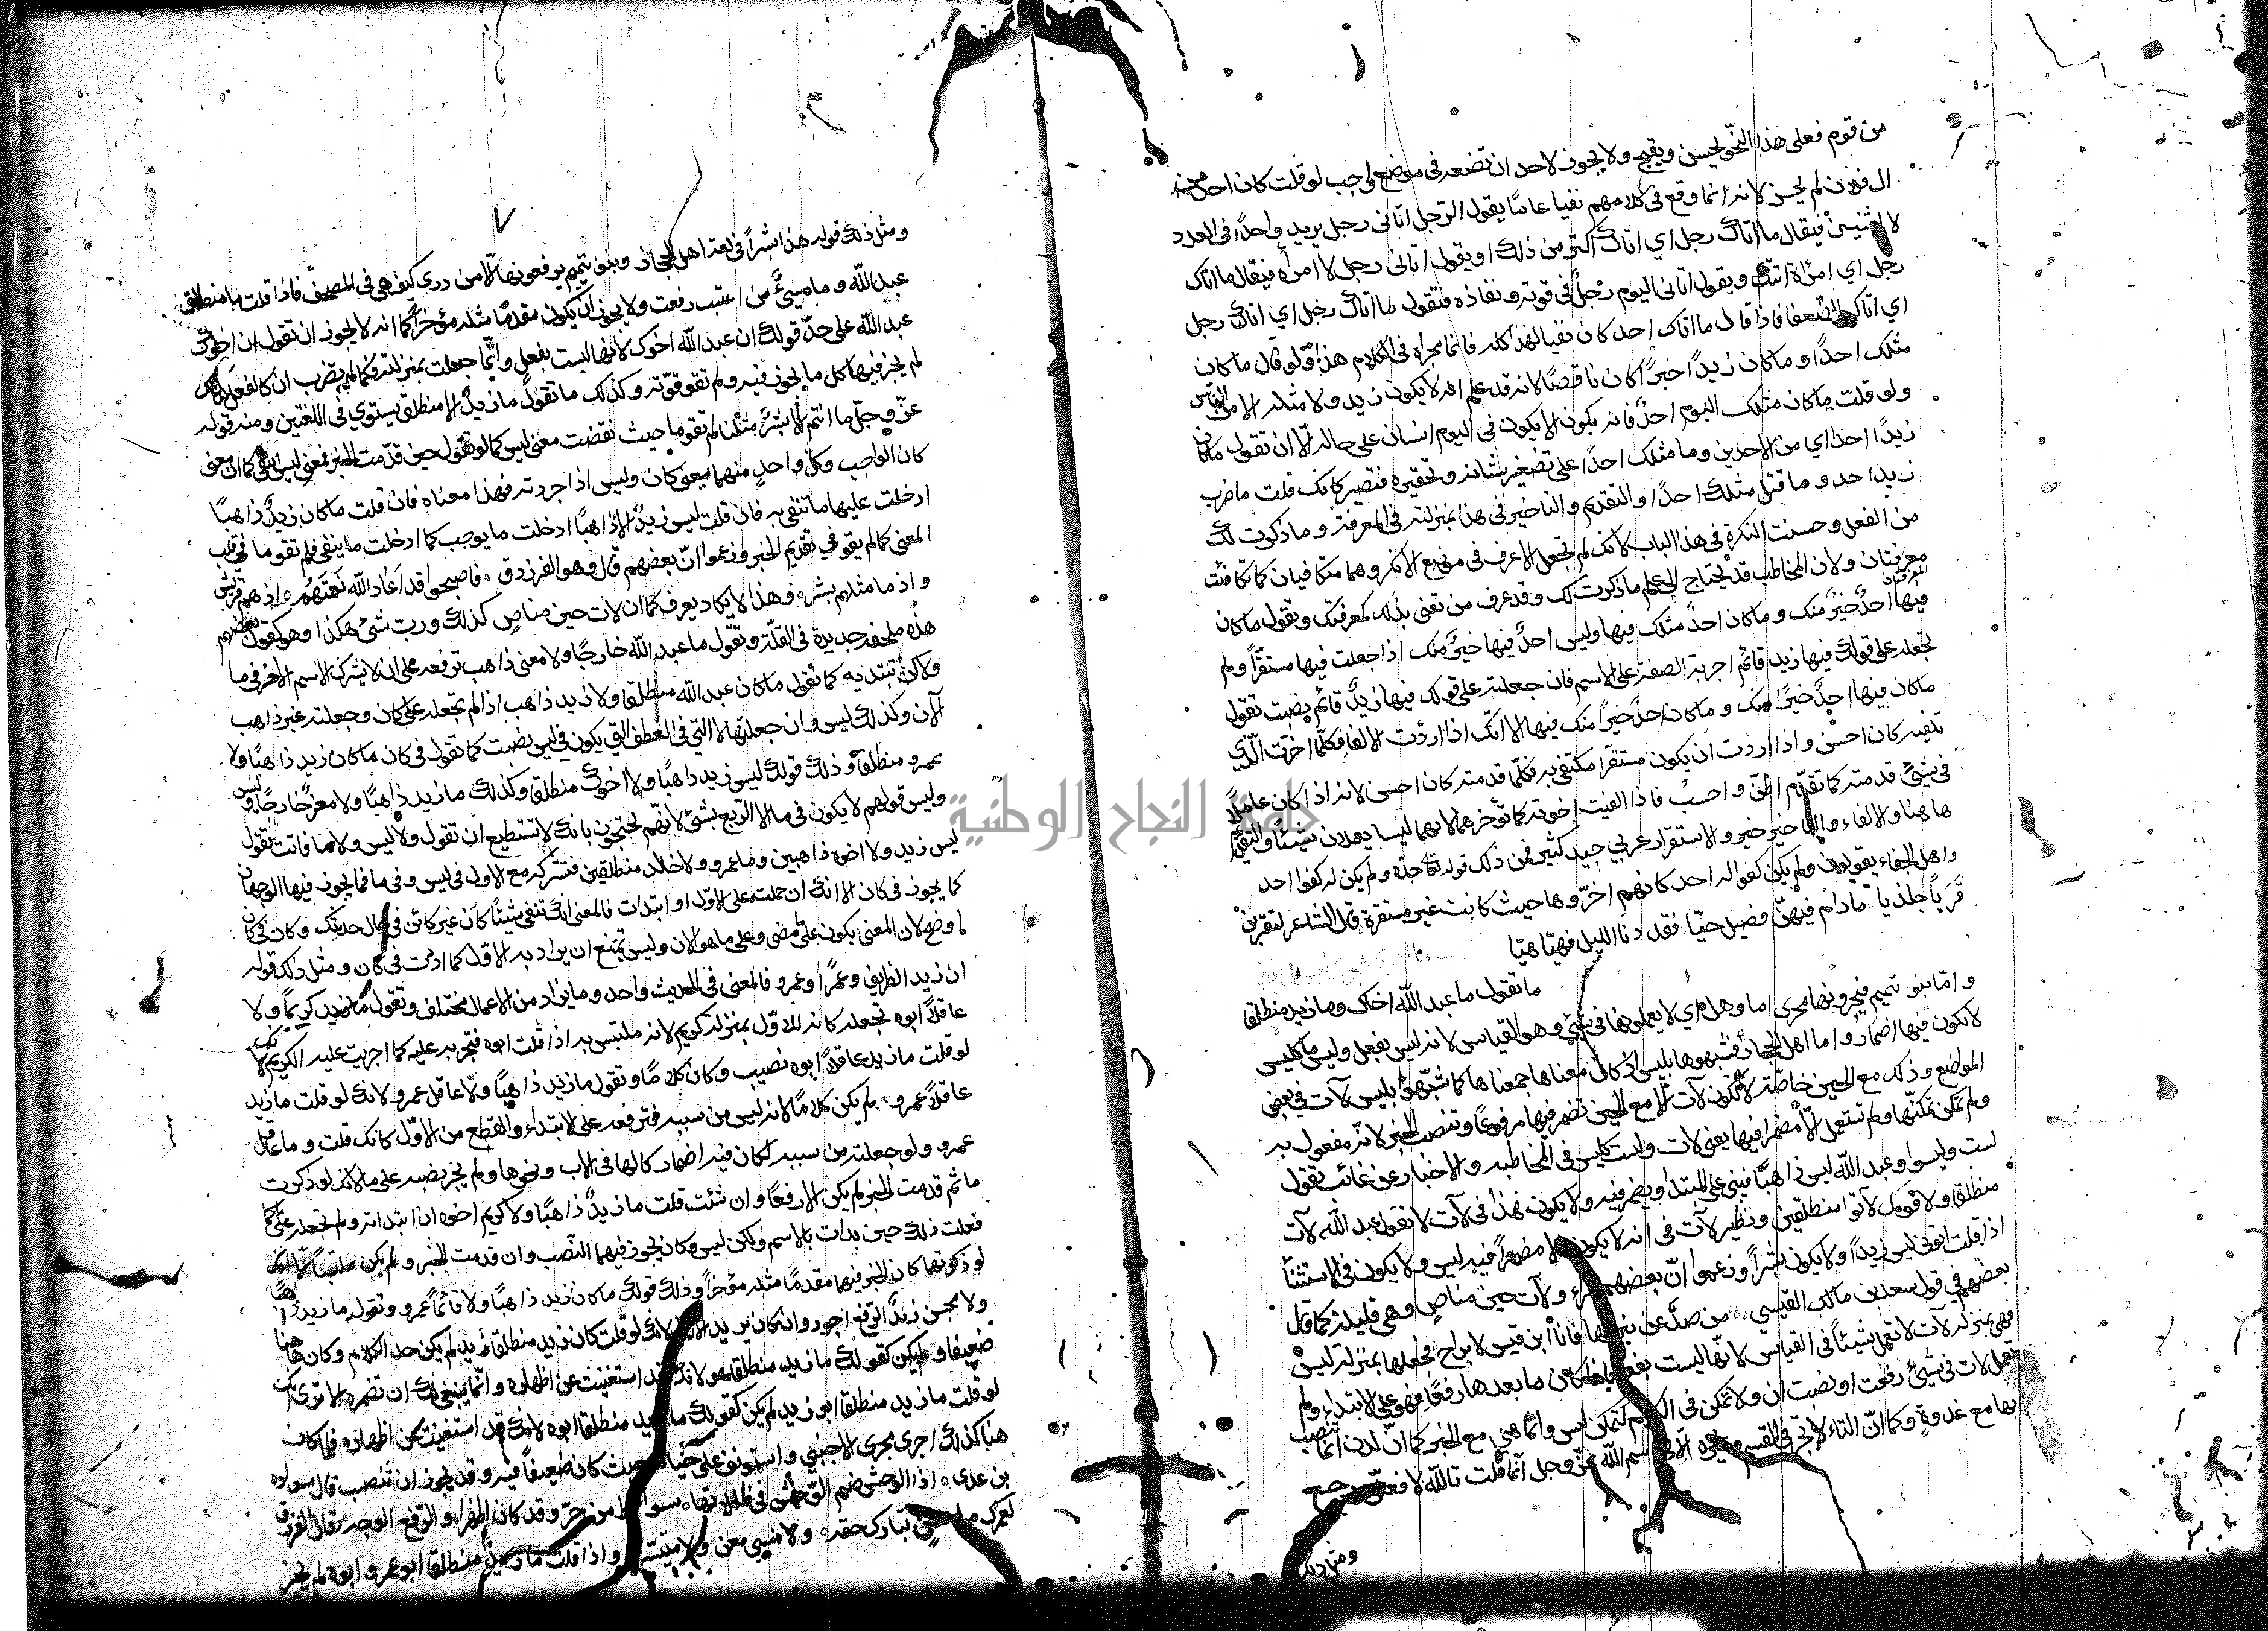 من قوم فعلى هذا النحو يحسن ويقبح ولا يجوز لاحد ان تضعه في موضع واجب لو قلت كان احد من
ال فلان لم يحسن لانه انما وقع في كلامهم نفيا عاما يقول الرجل اتاني رجل يريد واحدا في العدد
لا اثنين فيقال ما اتاك رجل اي اتاك اكثر من ذلك او يقول اتاني رجل لا امرأة فيقال ما اتاك
رجل اي امرأة اتتك ويقول اتاني اليوم رجل في قوته ونفاذه فتقول ما اتاك رجل اي اتاك رجل
اي اتاك الضعفا فاذا قال ما اتاك احد كان نفيا لهذا كله فانما مجراه في الكلام هذا فلو قال ما كان
مثلك احدا وما كان زيدا احد كان ناقضا لانه قد علم انه لا يكون زيد ولا مثله الا من الناس
ولو قلت ما كان مثلك اليوم احد فانه يكون الا يكون في اليوم انسان على حاله الا ان تقول ما كان
زيدا احد اي من الاحدين وما مثلك احدا على تصغير شانه وتحقيره فتصير كانك قلت ما ضرب
زيدا احد وما قتل مثلك احدا والتقديم والتاخير في هذا بمنزلته في المعرفة وما ذكرت لك
من الفعل وحسنت النكرة في هذا الباب لانك لم تجعل الاعرف في موضع الانكر وهما متكافيان كما تكافئت
المعرفتان ولان المخاطب قد يحتاج الى علم ما ذكرت لك وقد عرف من تعنى بذلك كمعرفتك وتقول ما كان
فيها احد خير منك وما كان احد مثلك فيها وليس احد فيها خير منك اذا جعلت فيها مستقرا ولم
تجعله على قولك فيها زيد قائم اجريت الصفة على الاسم فان جعلته على قولك فيها زيد قائم نصبت تقول
ما كان فيها احد خيرا منك وما كان احد خيرا منك فيها الا انك اذا اردت الالغا فكلما اخرت الذي
تلغيه كان احسن واذا اردت ان يكون مستقرا مكتفى به فكلما قدمته كان احسن لانه اذا كان عاملا
في شئ قدمته كما تقدم اظن واحسب فاذا الغيت اخرته كما تؤخرهما لانهما ليسا يعملان شيئا والتقديم
ها هنا والالغاء والتاخير والاستقرار عربي جيد كثير فمن ذلك قوله تعالى جده ولم يكن له كفوا احد
واهل الجفاء يقولون ولم يكن كفوا له احد كانهم اخروها حيث كانت غير مستقرة قال الشاعر لتقربن
قربا جلذيا ما دام فيهن فصيل حيا فقد دنا الليل فهيا هيا
ما تقول ما عبد الله اخاك وما زيد منطلقا
واما بنو تميم فيجرونها مجرى اما وهل اي لا يعملونها في شئ وهو القياس لانه ليس بفعل وليس ما كليس
لا تكون فيها اضمار واما اهل الحجاز فشبهوها بليس اذ كان معناها كمعناها كما شبهوا بليس لات في بعض
المواضع وذلك مع الحين خاصة لا تكون لات الا مع الحين تضمر فيها مرفوعا وتنصب الحين لانه مفعول به
ولم تمكن تمكنها ولم تستعمل الا مضمرا فيها يعنى لات وليست كليس في المخاطبه والاخبار عن غائب تقول
لست وليسوا وعبد الله ليس ذاهبا فيبنى على المبتدا ويضمر فيه ولا يكون هذا في لات لا تقول عبد الله لات
منطلقا ولا قومك لاتوا منطلقين ونظير لات في انه لا يكون الا مضمرا فيه ليس ولا يكون في الاستثنأ
اذا قلت اتوني ليس زيدا ولا يكون بشرا وزعموا ان بعضهم قرء ولات حين مناص وهي قليلة كما قال
بعضهم في قول سعد بن مالك القيسي من صد عن نيرانها فانا ابن قيس لا براح فجعلها بمنزلة ليس
فهي بمنزله لات لا تعمل شيئا في القياس لانها ليست بفعل ما بعدها رفعا فهو على الابتداء ولم
تعمل لات في شئ رفعت او نصبت ان ولا تمكن في الكلام كتمكن ليس وانما هي مع الحين كما ان لدن انما تنصب
بها مع غدوة وكما ان التاء لا تجر في القسم ولا غيره الا في اسم الله عز وجل اذا قلت تالله لافعلن
ومثل ذلك
٧
ومثل ذلك قوله هذا بشرا في لغة اهل الحجاز وبنو تميم يرفعونها الا من درى كيف هي في المصحف فاذا قلت ما منطلق
عبد الله وما مسئ من اعتب رفعت ولا يجوز ان يكون مقدما مثله مؤخرا كما انه لا يجوز ان تقول ان اخوك
عبد الله على حد قولك ان عبد الله اخوك لانها ليست بفعل وانما جعلت بمنزلته فكما لم يتصرف ان كالفعل كذلك
لم يجز فيها كل ما يجوز فيه ولم تقو قوته وكذلك ما تقول ما زيد الا منطلق يستوي في اللغتين ومنه قوله
عز وجل ما انتم الا بشر مثلنا لم تقو ما حيث نقضت معنى ليس كما لم تقو حين قدمت الخبر فمعنى ليس النفي كما ان معنى
كان الواجب وكل واحد منهما يعني كان وليس اذا جردته فهذا معناه فان قلت ما كان زيد ذاهبا
ادخلت عليها ما تنفى به فان قلت ليس زيد الا ذاهبا ادخلت ما يوجب كما ادخلت ما ينفى فلم تقو ما في قلب
المعنى كما لم يقو في تقديم الخبر وزعموا ان بعضهم قال وهو الفرزدق فاصبحوا قد اعاد الله نعمتهم اذ هم قريش
واذ ما مثلهم بشر وهذا لا يكاد يعرف كما ان لات حين مناص كذلك ورب شئ هكذا وهو كقول بعضهم
هذه ملحفه جديدة في القلة وتقول ما عبد الله خارجا ولا معن ذاهب ترفعه على ان لا يشرك الاسم الاخر في ما
ولكن تبتديه كما تقول ما كان عبد الله منطلقا ولا زيد ذاهب اذا لم تجعله على كان وجعلته غير ذاهب
الان وكذلك ليس وان جعلتها لا التي في العطف التي يكون في ليس نصبت كما تقول في كان ما كان زيد ذاهبا ولا
عمرو منطلقا وذلك قولك ليس زيد ذاهبا ولا اخوك منطلقا وكذلك ما زيد ذاهبا ولا معن خارجا وليس
وليس قولهم لا يكون في ما الا الرفع بشئ لانهم يحتجون بانك لا تستطيع ان تقول ولا ليس ولا ما فانت تقول
ليس زيد ولا اخوه ذاهبين وما عمرو ولا خالد منطلقين فتشركه مع الاول في ليس وفي ما فما يجوز فيها الوجهان
كما يجوز في كان الا انك ان حملته على الاول او ابتدات فالمعنى انك تنفى شيئا كان غير كائن في حال حديثك وكان في كان
اوضح لان المعنى يكون على ما مضى وعلى ما هو الان وليس يمتنع ان يراد به الاول كما اردت في كان ومثل ذلك قوله
ان زيدا لظريف وعمرا وعمرو فالمعنى في الحديث واحد وما يراد من الاعمال مختلف وتقول ما زيد كريما ولا
عاقلا ابوه تجعله كانه للاول بمنزله كريم لانه ملتبس به اذا قلت ابوه فتجريه عليه كما اجريت عليه الكريم لانك
لو قلت ما زيد عاقلا ابوه نصبت وكان كلاما وتقول ما زيد ذاهبا ولا عاقل عمرو لانك لو قلت ما زيد
عاقلا عمرو لم يكن كلاما لانه ليس من سببه فترفعه على الابتداء والقطع من الاول كانك قلت وما عاقل
عمرو ولو جعلته من سببه لكان فيه اضمار كالهاء في الاب ونحوها ولم يجز نصبه على ما لانك لو ذكرت
ما ثم قدمت الخبر لم يكن الا رفعا وان شئت قلت ما زيد ذاهبا ولا كريم اخوه ان ابتداته ولم تجعله على ما
فعلت ذلك حين بدات بالاسم ولكن ليس وكان يجوز فيهما النصب وان قدمت الخبر ولم يكن ملتبسا لانك
لو ذكرتهما كان الخبر فيهما مقدما مثله مؤخرا وذلك قولك ما كان زيد ذاهبا ولا قائما عمرو وتقول ما زيد ذاهبا
ولا محسن زيد الرفع اجود وان كان يريد الاول لانك لو قلت كان زيد منطلقا زيد لم يكن حد الكلام وكان ها هنا
ضعيفا ولم يكن كقولك ما زيد منطلقا هو لانك قد استغنيت عن اظهاره وانما ينبغي لك ان تضمره الا ترى انك
لو قلت ما زيد منطلقا ابو زيد لم يكن كقولك ما زيد منطلقا ابوه لانك قد استغنيت عن اظهاره فلما كان
هذا كذلك اجرى مجرى الاجنبي واستونف على حياله حيث كان ضعيفا فيه وقد يجوز ان تنصب قال سوادة
بن عدى اذا الوحش ضم الوحش في ظللاتها سواقط من حر وقد كان اظهرا والرفع الوجه وقال الفرزدق
لعمرك ما معن بتارك حقه ولا منسئ معن ولا متيسر واذا قلت ما زيد منطلقا ابو عمرو وابوه لم يجز
جامعة النجاح الوطنية